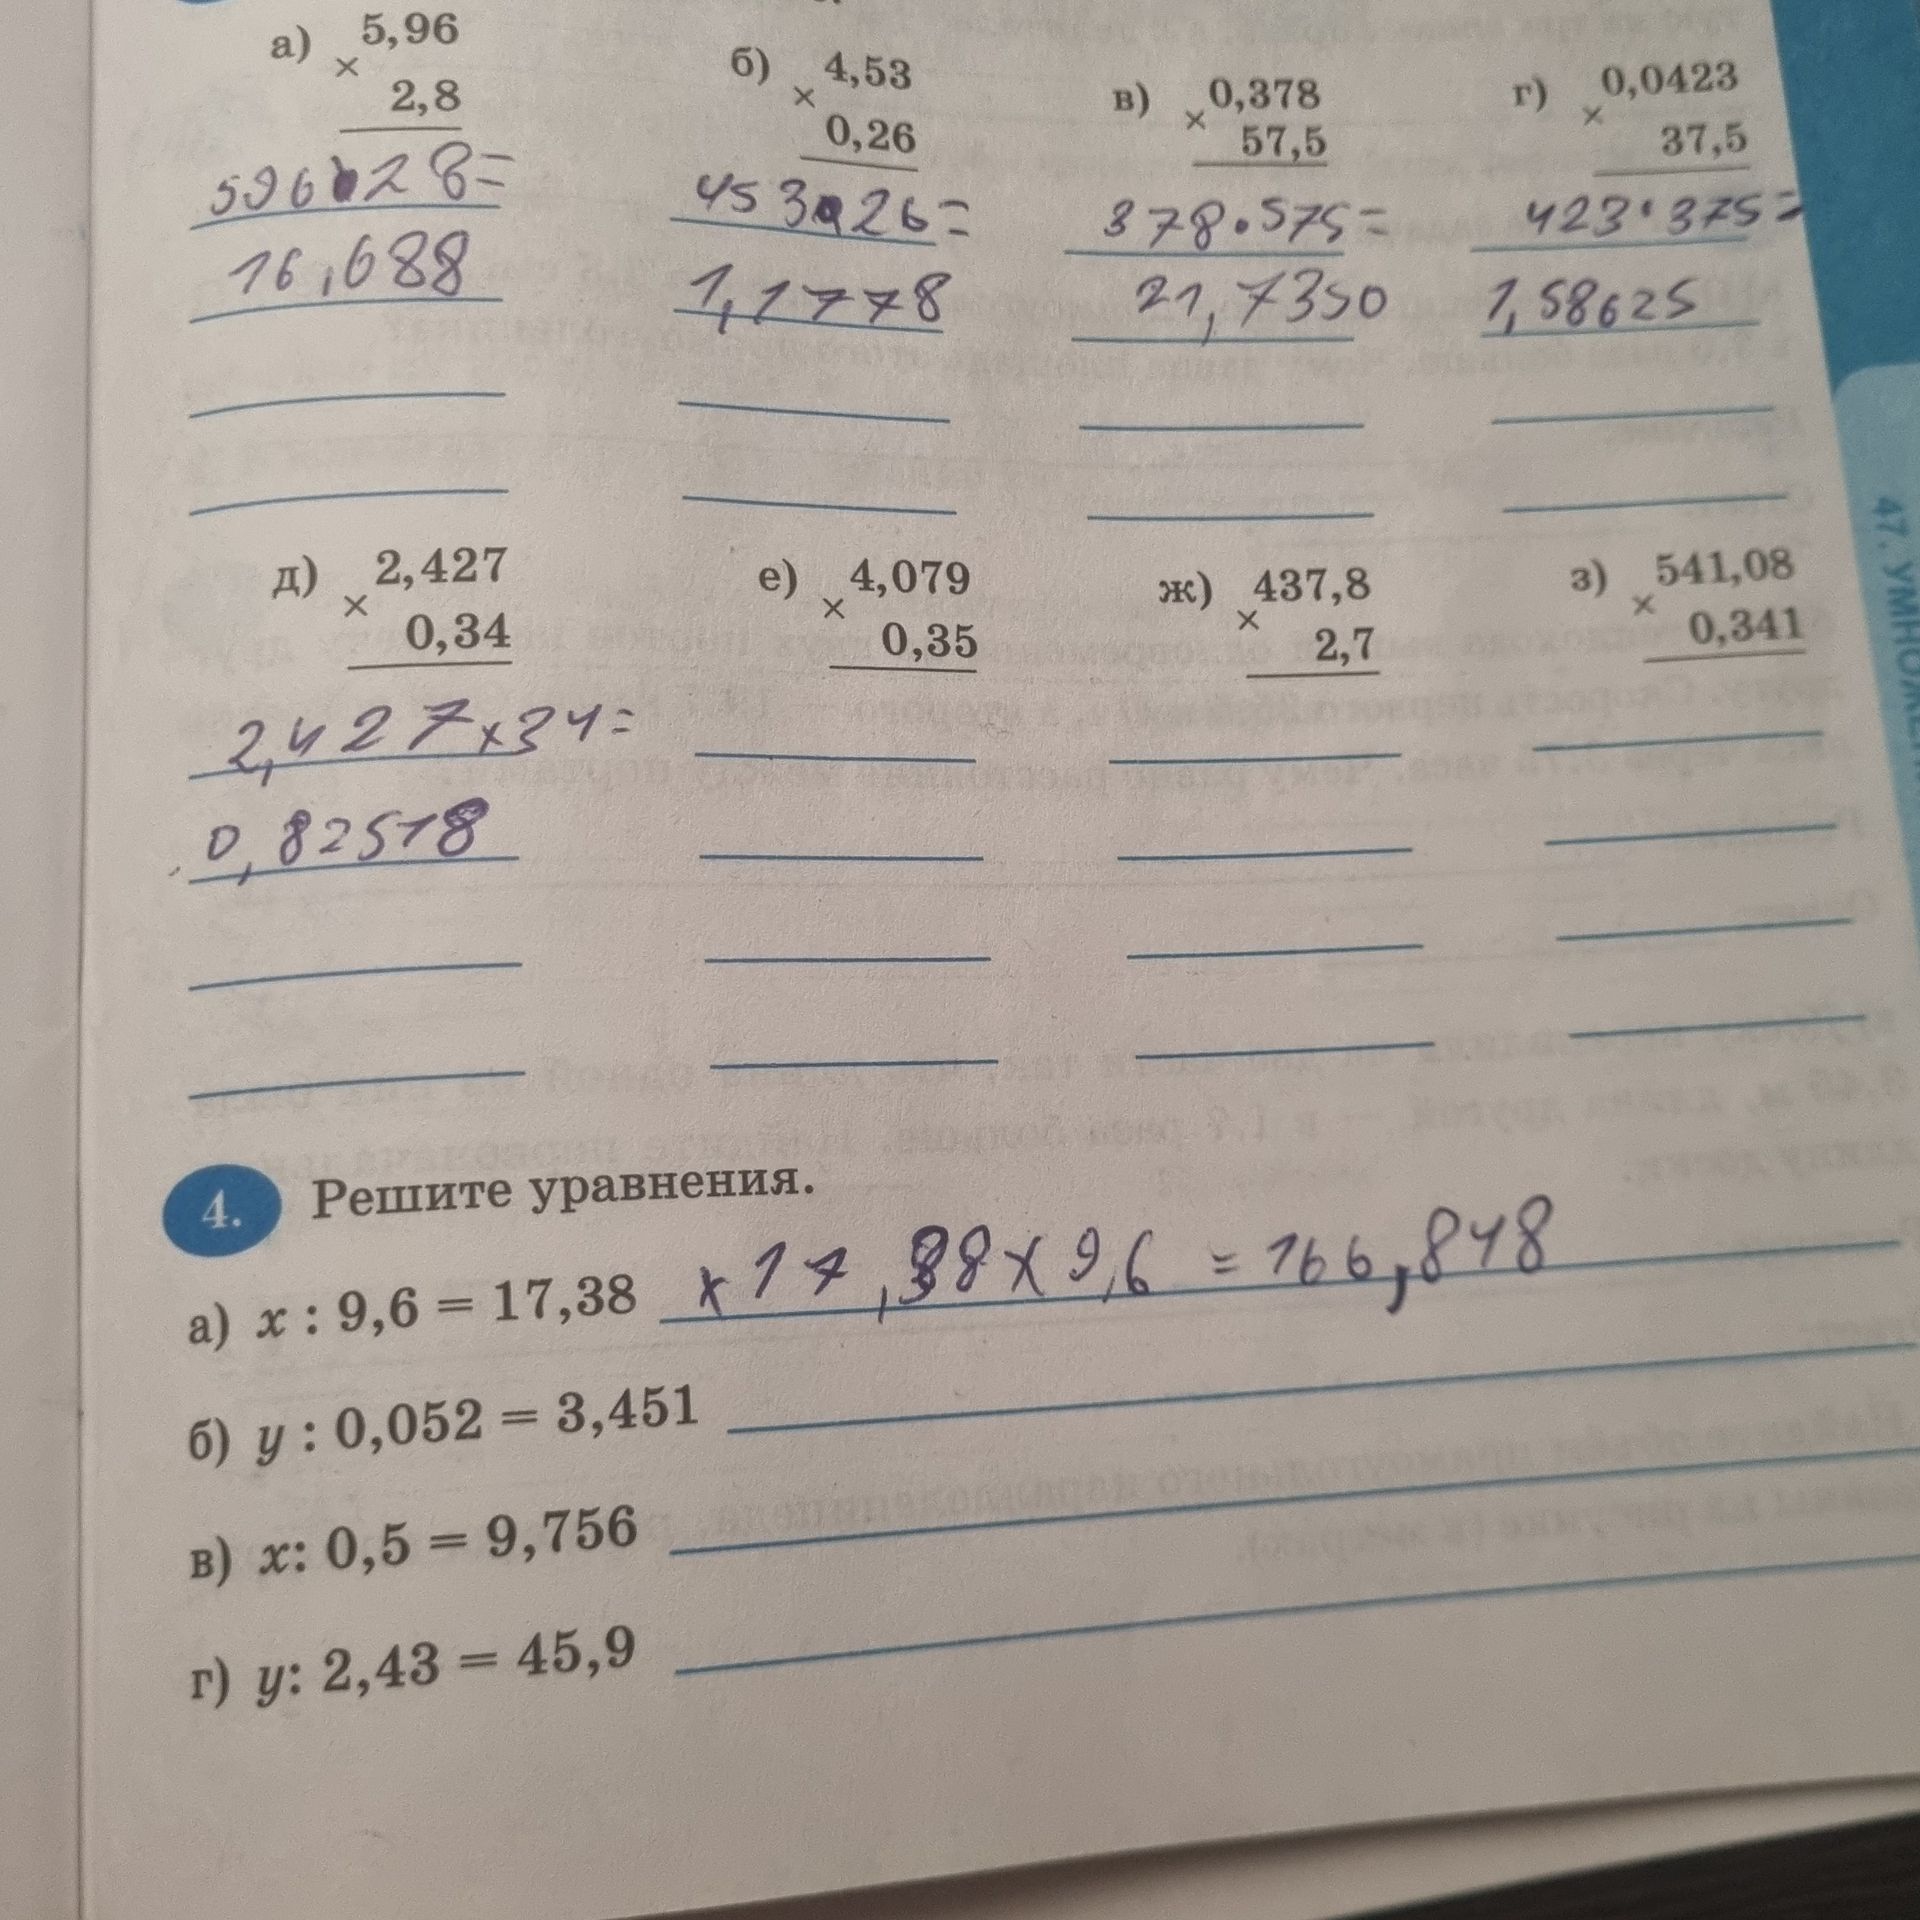 а) × 5,96
2,8
596·28=
16,688
б) × 4,53
0,26
453·26=
1,1778
в) × 0,378
57,5
378·575=
21,7350
г) × 0,0423
37,5
423·375=
1,58625
д) × 2,427
0,34
2,427×34=
0,82518
е) × 4,079
0,35
ж) × 437,8
2,7
з) × 541,08
0,341
4. Решите уравнения.
а) x : 9,6 = 17,38 x 17,38 x 9,6 = 166,848
б) y : 0,052 = 3,451
в) x: 0,5 = 9,756
г) y: 2,43 = 45,9
47. УМНОЖЕНИ